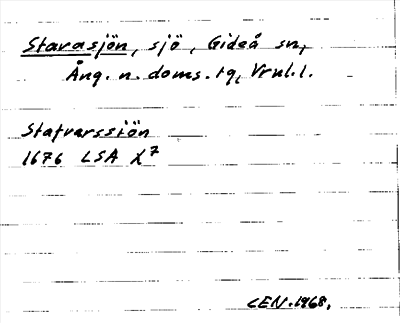 Stavasjön, sjö, Gideå sn,
Ång. n. doms. tg, Vrnl. l.
Stafwerssiön
1676 LSA X7
CEN. 1968.